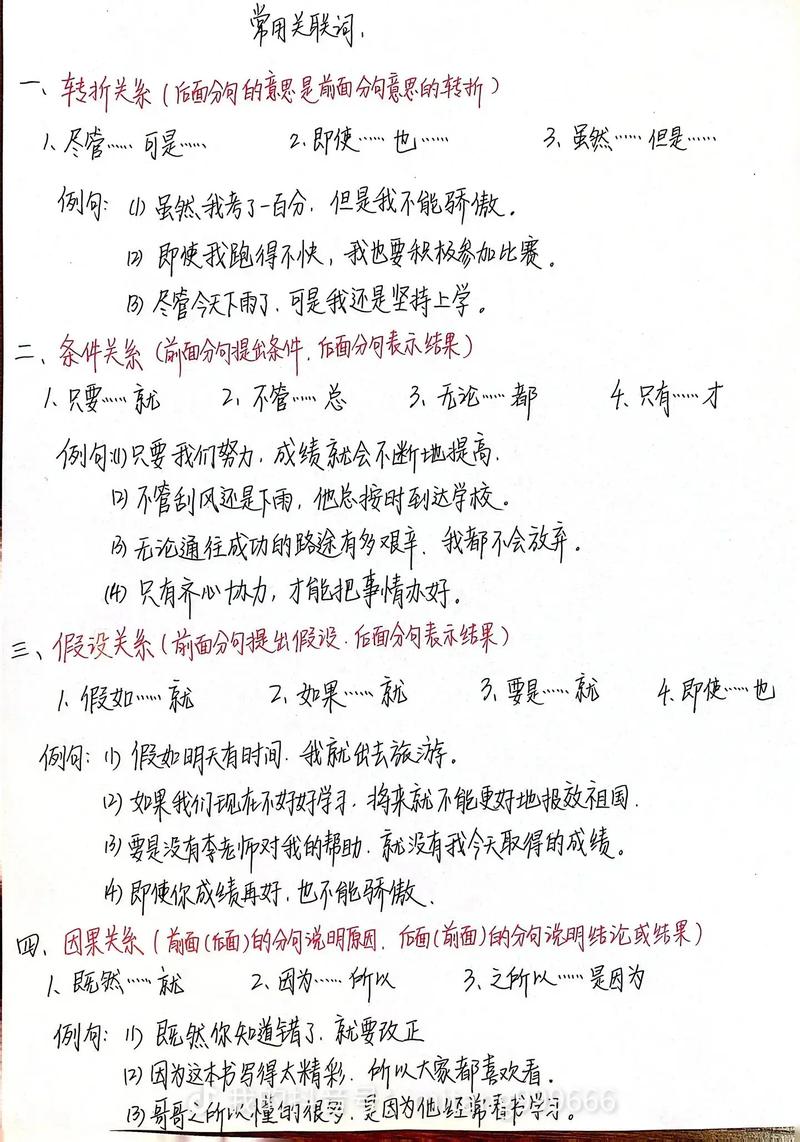 常用关联词.
一、转折关系(后面分句的意思是前面分句意思的转折)
1、尽管……可是…… 2、即使……也…… 3、虽然……但是……
例句: (1) 虽然我考了一百分,但是我不能骄傲。
(2) 即使我跑得不快,我也要积极参加比赛。
(3) 尽管今天下雨了,可是我还是坚持上学。
二、条件关系(前面分句提出条件,后面分句表示结果)
1、只要……就 2、不管……总 3、无论……都 4、只有……才
例句:(1)只要我们努力,成绩就会不断地提高.
(2) 不管刮风还是下雨,他总按时到达学校。
(3) 无论通往成功的路途有多艰辛,我都不会放弃。
(4) 只有齐心协力,才能把事情办好。
三、假设关系(前面分句提出假设.后面分句表示结果)
1、假如……就 2、如果……就 3、要是……就 4、即使……也
例句: (1) 假如明天有时间.我就出去旅游。
(2) 如果我们现在不好好学习,将来就不能更好地报效祖国.
(3) 要是没有李老师对我的帮助.就没有我今天取得的成绩。
(4) 即使你成绩再好,也不能骄傲.
四、因果关系(前面(后面)的分句说明原因.后面(前面)的分句说明结论或结果)
1、既然……就 2、因为……所以 3、之所以……是因为
例句: (1) 既然你知道错了.就要改正
(2) 因为这本书写得太精彩.所以大家都喜欢看。
(3) 哥哥之所以懂的很多.是因为他经常看书学习。